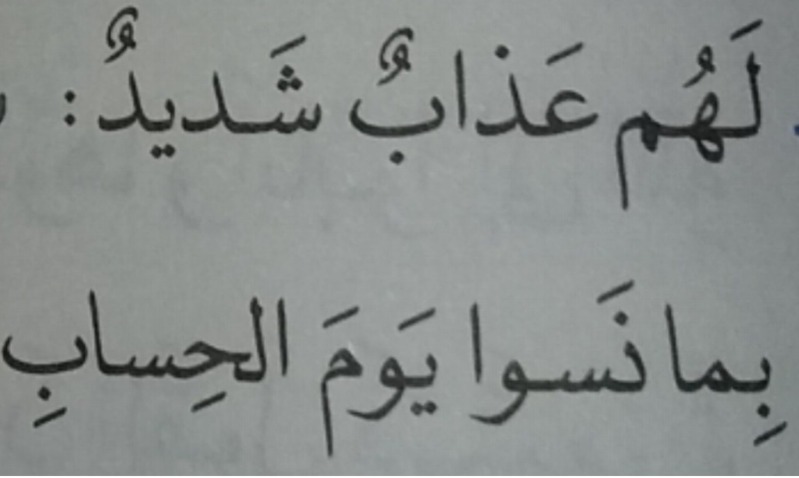 لَهُم عَذابٌ شَديدٌ :
بِما نَسوا يَومَ الحِسابِ